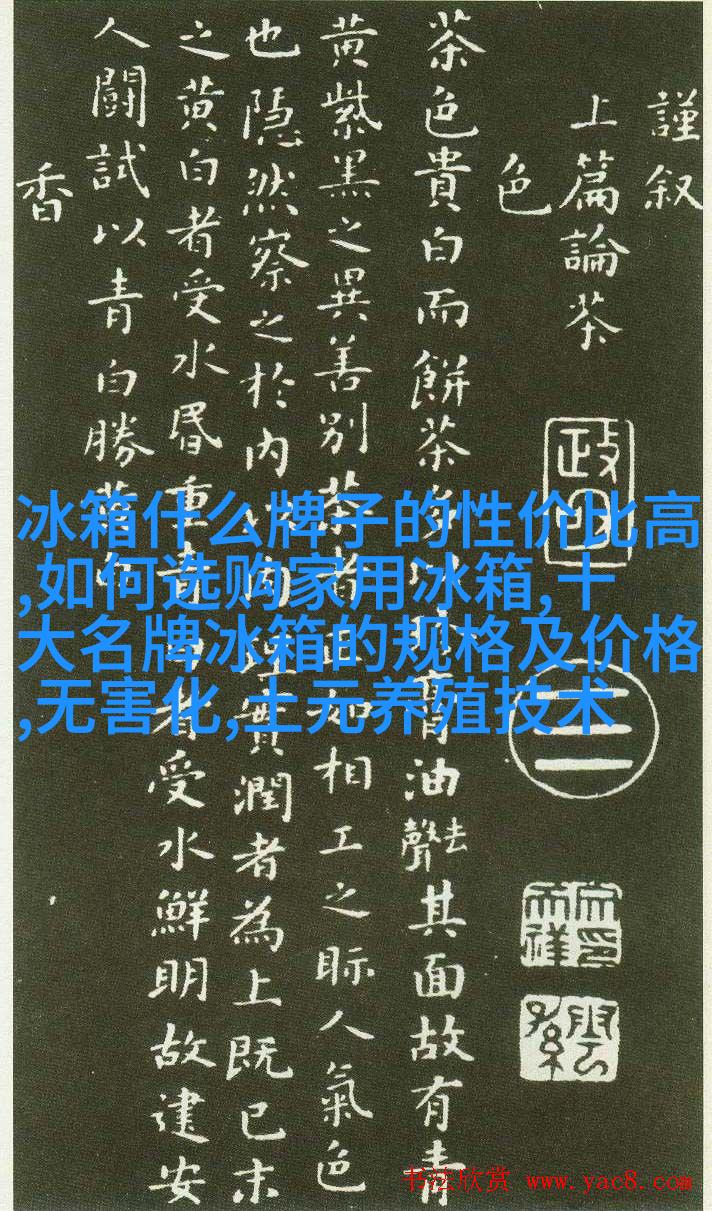 謹叙
上篇論茶
色
茶色貴白而餅茶多以珍膏油去聲其面故有青
黄紫黑之異善别茶者正如相工之眎人氣色
也隠然察之於内以肉理實潤者為上既已末
之黄白者受水昬重青白者受水鮮明故建安
人鬪試以青白勝黄白
香
冰箱什么牌子的性价比高
,如何选购家用冰箱,十
大名牌冰箱的规格及价格
,无害化,土元养殖技术
书法欣赏 www.yac8.com